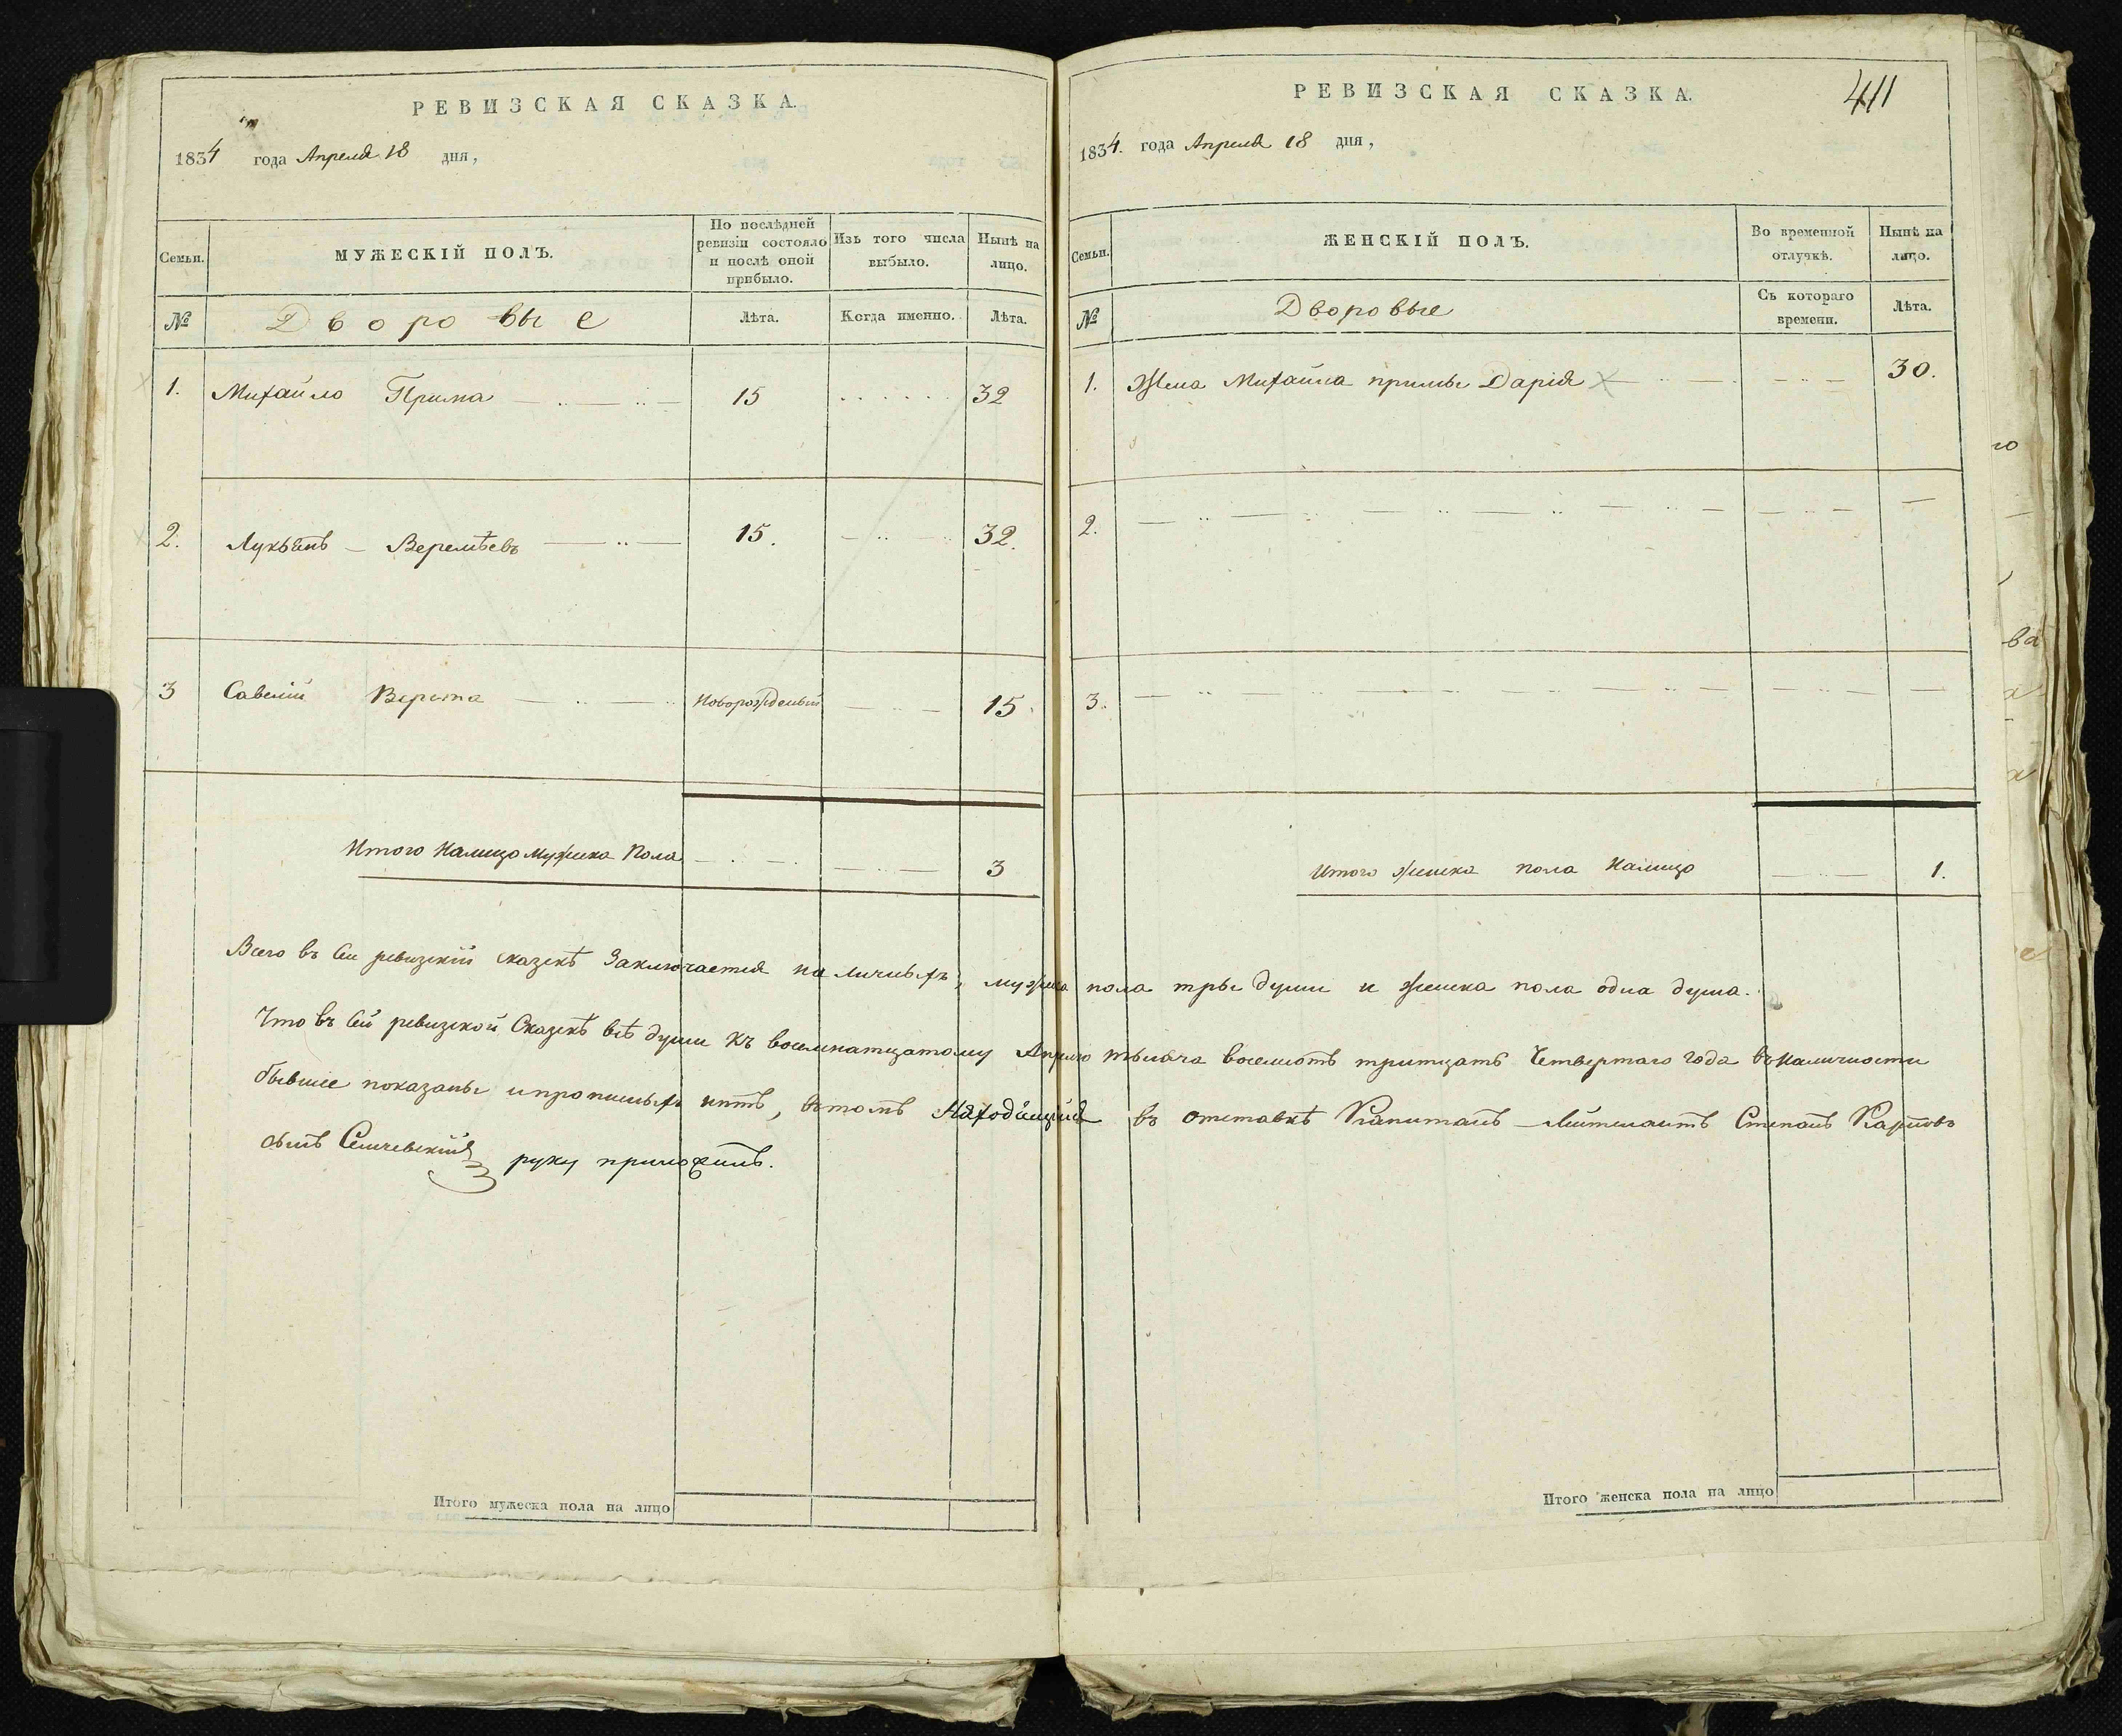 РЕВИЗСКАЯ СКАЗКА.
1834 года Апреля 18 дня,
Семьи.
МУЖЕСКІЙ ПОЛЪ.
По послѣдней ревизіи состояло и послѣ оной прибыло.
Изъ того числа выбыло.
Нынѣ на лицо.
№
Дворовые
Лѣта.
Когда именно.
Лѣта.
1. Михайло Прима 15 32
2. Лукьянъ Веремѣевъ 15. 32.
3 Савелій Верета новорожденый 15
Итого налицо мужска пола 3
РЕВИЗСКАЯ СКАЗКА.
411
1834. года Апреля 18 дня,
Семьи.
ЖЕНСКІЙ ПОЛЪ.
Во временной отлучкѣ.
Нынѣ на лицо.
№
Дворовые
Съ котораго времени.
Лѣта.
1. Жена Михайла примы Дарія 30.
2.
3.
Итого женска пола налицо 1.
Всего въ сеи ревизскій сказкѣ заключается наличныхъ, мужска пола тры души и женска пола одна душа.
Что въ сей ревизской сказкѣ всѣ души къ восемнатцатому Апрелю тысяча восемсотъ тритцать четвертаго года въ наличности
бывшіе показаны и прописныхъ нѣтъ, въ томъ находящійся въ отставкѣ Капитанъ-Лейтенантъ Степанъ Карповъ
сынъ руку приложилъ.
Итого мужеска пола на лицо
Итого женска пола на лицо